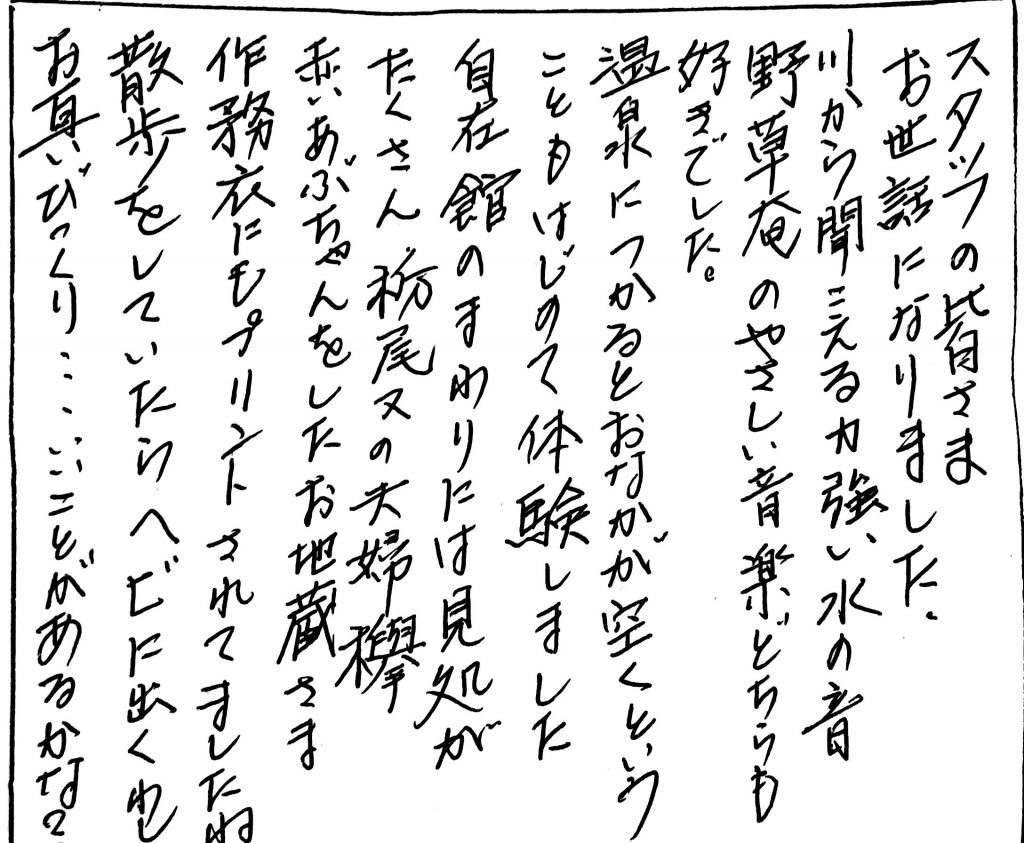 スタッフの皆さま
お世話になりました。
川から聞こえる力強い水の音
野草庵のやさしい音楽どちらも
好きでした。
温泉につかるとおなかが空くという
こともはじめて体験しました
自在館のまわりには見処が
たくさん 栃尾又の夫婦欅
赤いあぶちゃんをしたお地蔵さま
作務衣にもプリントされてましたね
散歩をしていたらヘビに出くわし
お互いびっくり…いいことがあるかな?